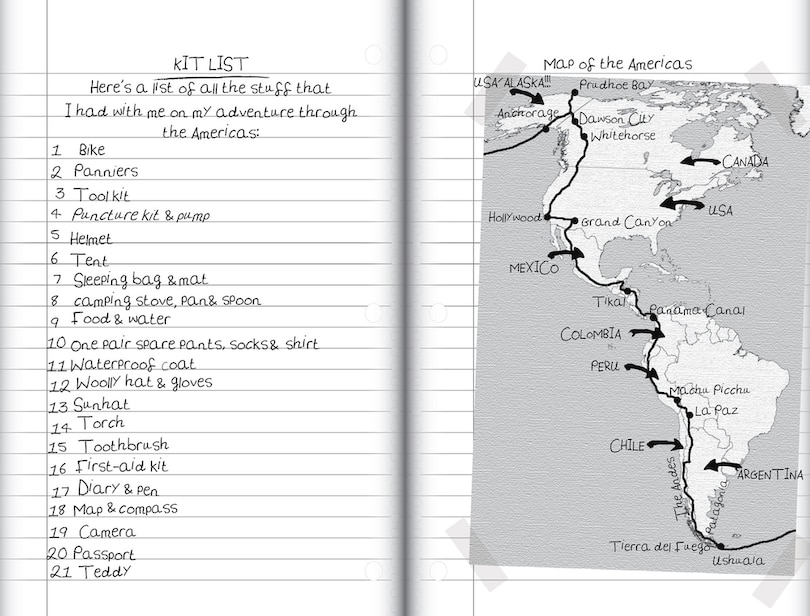 KIT LIST
Here's a list of all the stuff that
I had with me on my adventure through
the Americas:
1 Bike
2 Panniers
3 Toolkit
4 Puncture kit & pump
5 Helmet
6 Tent
7 Sleeping bag & mat
8 camping stove, pan & spoon
9 Food & water
10 One pair spare pants, socks & shirt
11 Waterproof coat
12 Woolly hat & gloves
13 Sunhat
14 Torch
15 Toothbrush
16 First-aid kit
17 Diary & pen
18 Map & compass
19 Camera
20 Passport
21 Teddy
Map of the Americas
USA/ALASKA!!!
Prudhoe Bay
Anchorage
Dawson City
Whitehorse
CANADA
USA
Hollywood
Grand Canyon
MEXICO
Tikal
Panama Canal
COLOMBIA
PERU
Machu Picchu
La Paz
CHILE
ARGENTINA
The Andes
Patagonia
Tierra del Fuego
Ushuaia